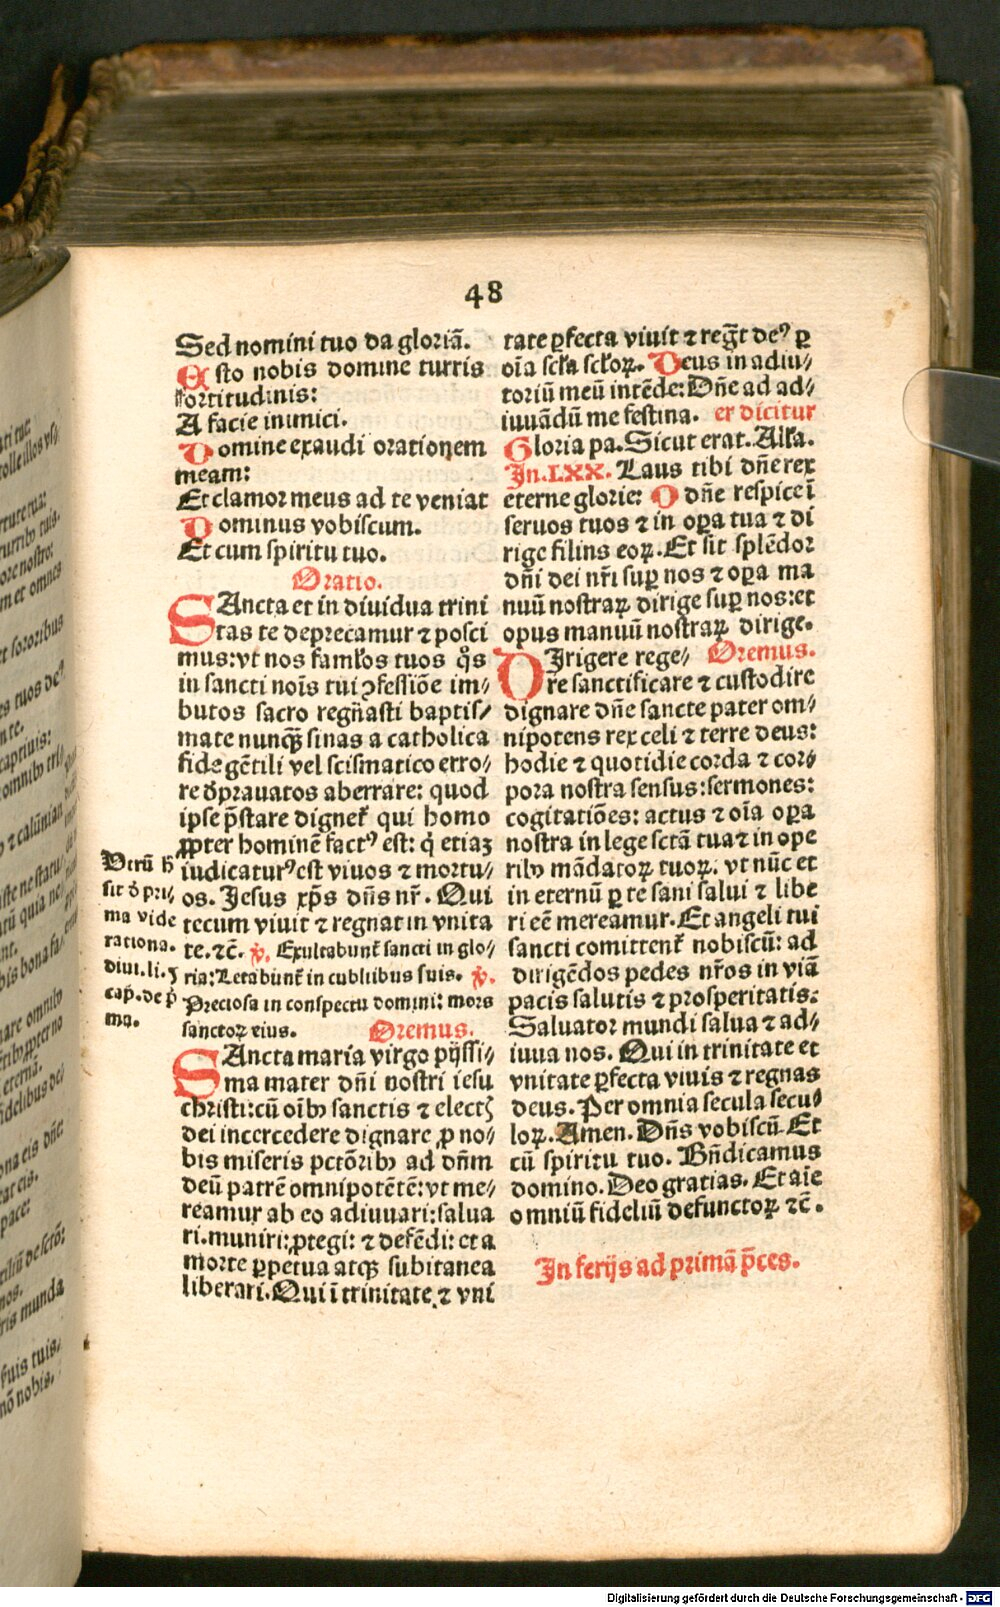 48
Sed nomini tuo da gloriã.
Esto nobis domine turris
fortitudinis:
A facie inimici.
Domine exaudi orationem
meam:
Et clamor meus ad te veniat
Dominus vobiscum.
Et cum spiritu tuo.
Oratio.
SAncta et in diuidua trini
tas te deprecamur ⁊ posci
mus: vt nos famłos tuos q̊s
in sancti noĩs tui ↄfessiõe im⸗
butos sacro regñasti baptis⸗
mate nunq̃ sinas a catholica
fide gẽtili vel scismatico erro⸗
re dẽprauatos aberrare: quod
ipse p̃stare digneť qui homo
ꝓpter hominẽ factꝰ est: q̇ etiaʒ
iudicaturꝰ est viuos ⁊ mortu⸗
os. Jesus xp̃s dñs nr̃. Qui
tecum viuit ⁊ regnat in vnita
te. ⁊c̃. ꝟ. Exultabunť sancti in glo⸗
ria: Letabunť in cubilibus suis. ꝟ.
Preciosa in conspectu domini: mors
sanctoꝝ eius. Oremus.
SAncta maria virgo pijssi⸗
ma mater dñi nostri iesu
christi: cũ oĩbꝰ sanctis ⁊ electꝭ
dei intercedere dignare ꝓ no⸗
bis miseris pctõribꝰ ad dñm
deũ patrẽ omnipotẽtẽ: vt me⸗
reamur ab eo adiuuari: salua
ri. muniri: ꝓtegi: ⁊ defẽdi: et a
morte ꝑpetua atqꝫ subitanea
liberari. Qui ĩ trinitate ⁊ vni
Vtrũ h̃
sit d̾ pri⸗
ma vide
rationa.
diui. li. ʒ
cap̃. de p̃
ma.
tate ꝑfecta viuit ⁊ reg̃t deꝰ ꝑ
oĩa scľa scľoꝝ. Deus in adiu⸗
toriũ meũ intẽde: Dñe ad ad⸗
iuuãdũ me festina. ter dicitur
Gloria pa. Sicut erat. Alľa.
In. LXX. Laus tibi dñe rex
eterne glorie: O dñe respice ĩ
seruos tuos ⁊ in oꝑa tua ⁊ di
rige filios eoꝝ. Et sit splẽdor
dñi dei nr̃i suꝑ nos ⁊ oꝑa ma
nuũ nostraꝝ dirige suꝑ nos: et
opus manuũ nostraꝝ dirige.
DIrigere rege⸗ Oremus.
re sanctificare ⁊ custodire
dignare dñe sancte pater om⸗
nipotens rex celi ⁊ terre deus:
hodie ⁊ quotidie corda ⁊ cor⸗
pora nostra sensus: sermones:
cogitatiões: actus ⁊ oĩa oꝑa
nostra in lege sctã tua ⁊ in ope
ribꝰ mãdatoꝝ tuoꝝ. vt nũc et
in eternũ ꝑ te sani salui ⁊ libe
ri eẽ mereamur. Et angeli tui
sancti comittenť nobiscũ: ad
dirigẽdos pedes nr̃os in viã
pacis salutis ⁊ prosperitatis:
Saluator mundi salua ⁊ ad⸗
iuua nos. Qui in trinitate et
vnitate ꝑfecta viuis ⁊ regnas
deus. Per omnia secula secu⸗
loꝝ. Amen. Dñs vobiscũ Et
cũ spiritu tuo. Bñdicamus
domino. Deo gratias. Et aĩe
omniũ fideliũ defunctoꝝ ⁊c̃.
In ferijs ad primã p̃ces.
Digitalisierung gefördert durch die Deutsche Forschungsgemeinschaft - DFG